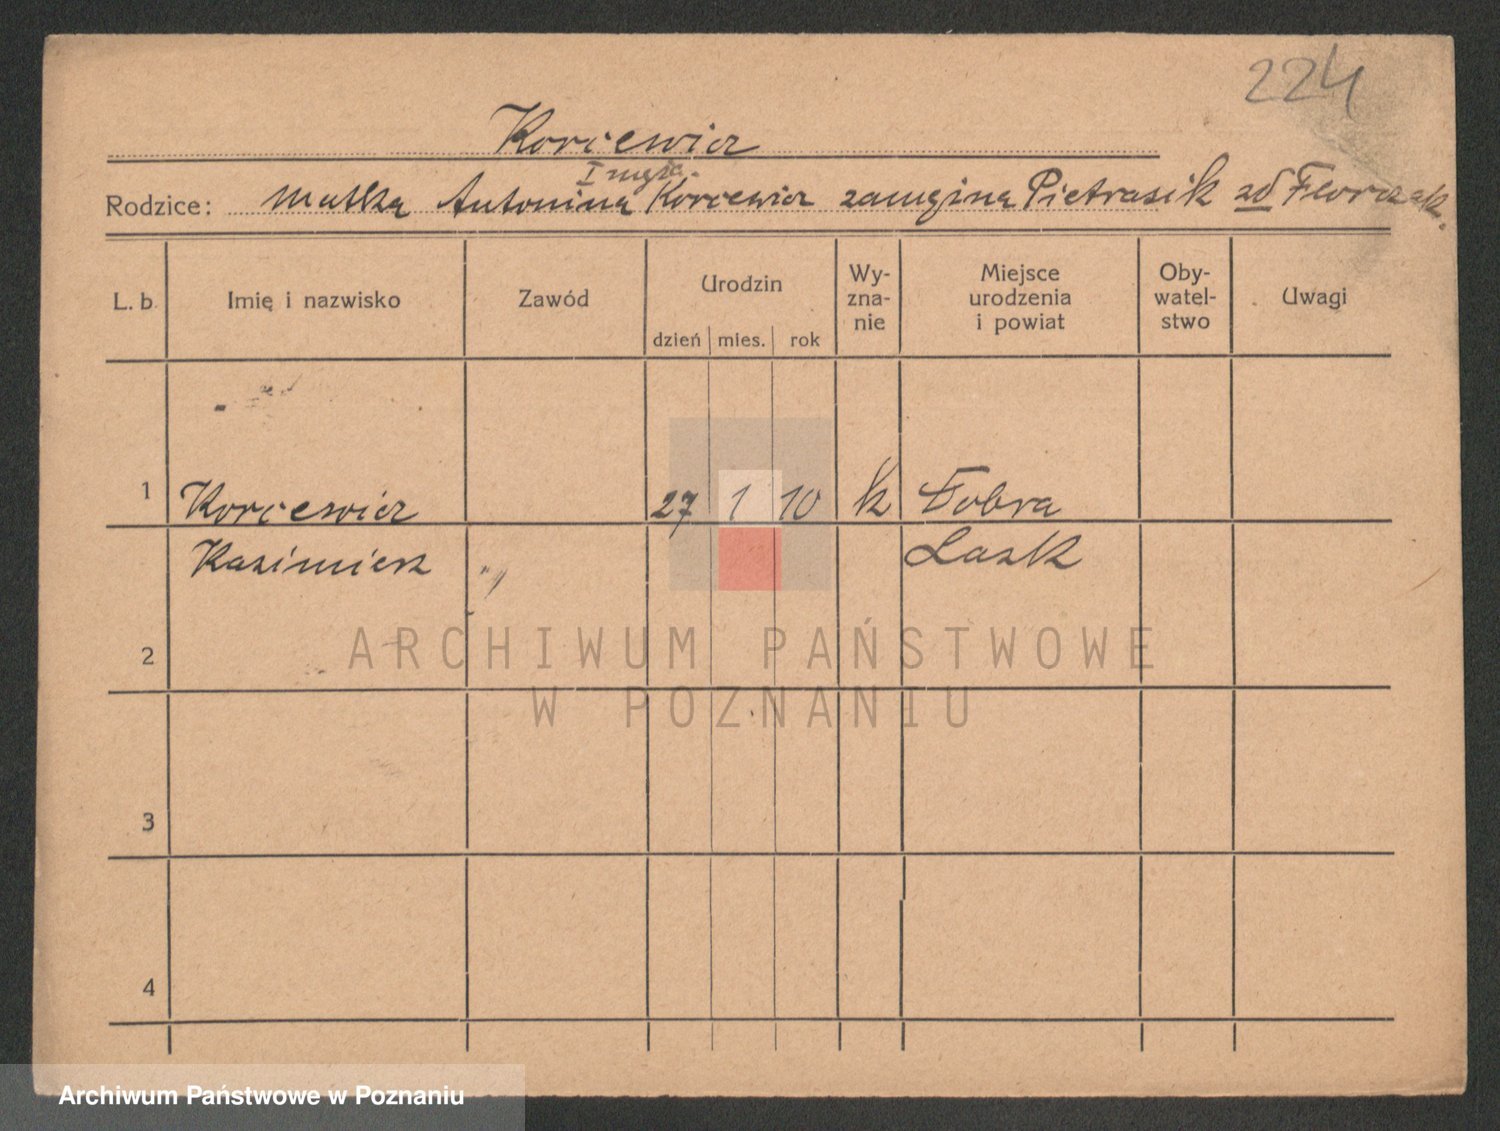 224
Korcewicz
I męża.
Rodzice: matka Antonina Korcewicz zamężna Pietrasik zd Florczak.
L. b. Imię i nazwisko Zawód Urodzin dzień mies. rok Wy-zna-nie Miejsce urodzenia i powiat Oby-watel-stwo Uwagi
1 Korcewicz 27 1 10 k Dobra
Kazimierz Lask
2
ARCHIWUM PAŃSTWOWE
W POZNANIU
3
4
Archiwum Państwowe w Poznaniu